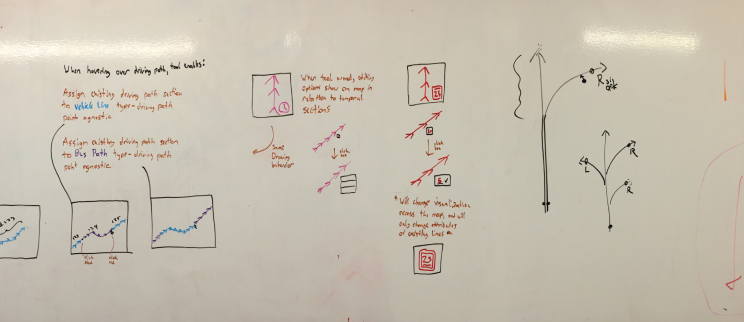 When hovering over driving path, tool enables:
Assign existing driving path section
to Vehicle Line type-driving path
point agnostic
Assign existing driving path section
to Bus Path type-driving path
point agnostic.
When tool armed,
options show on map in
relation to temporal
sections
Same
Drawing
behavior
click
box
click
box
* Will change visualization
across the map, and will
only change attributes
of existing lines
25
R
L
R
R